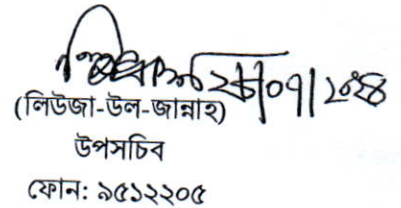 ২৮/০৭/২০২৪
(লিউজা-উল-জান্নাহ)
উপসচিব
ফোন: ৯৫১২২০৫